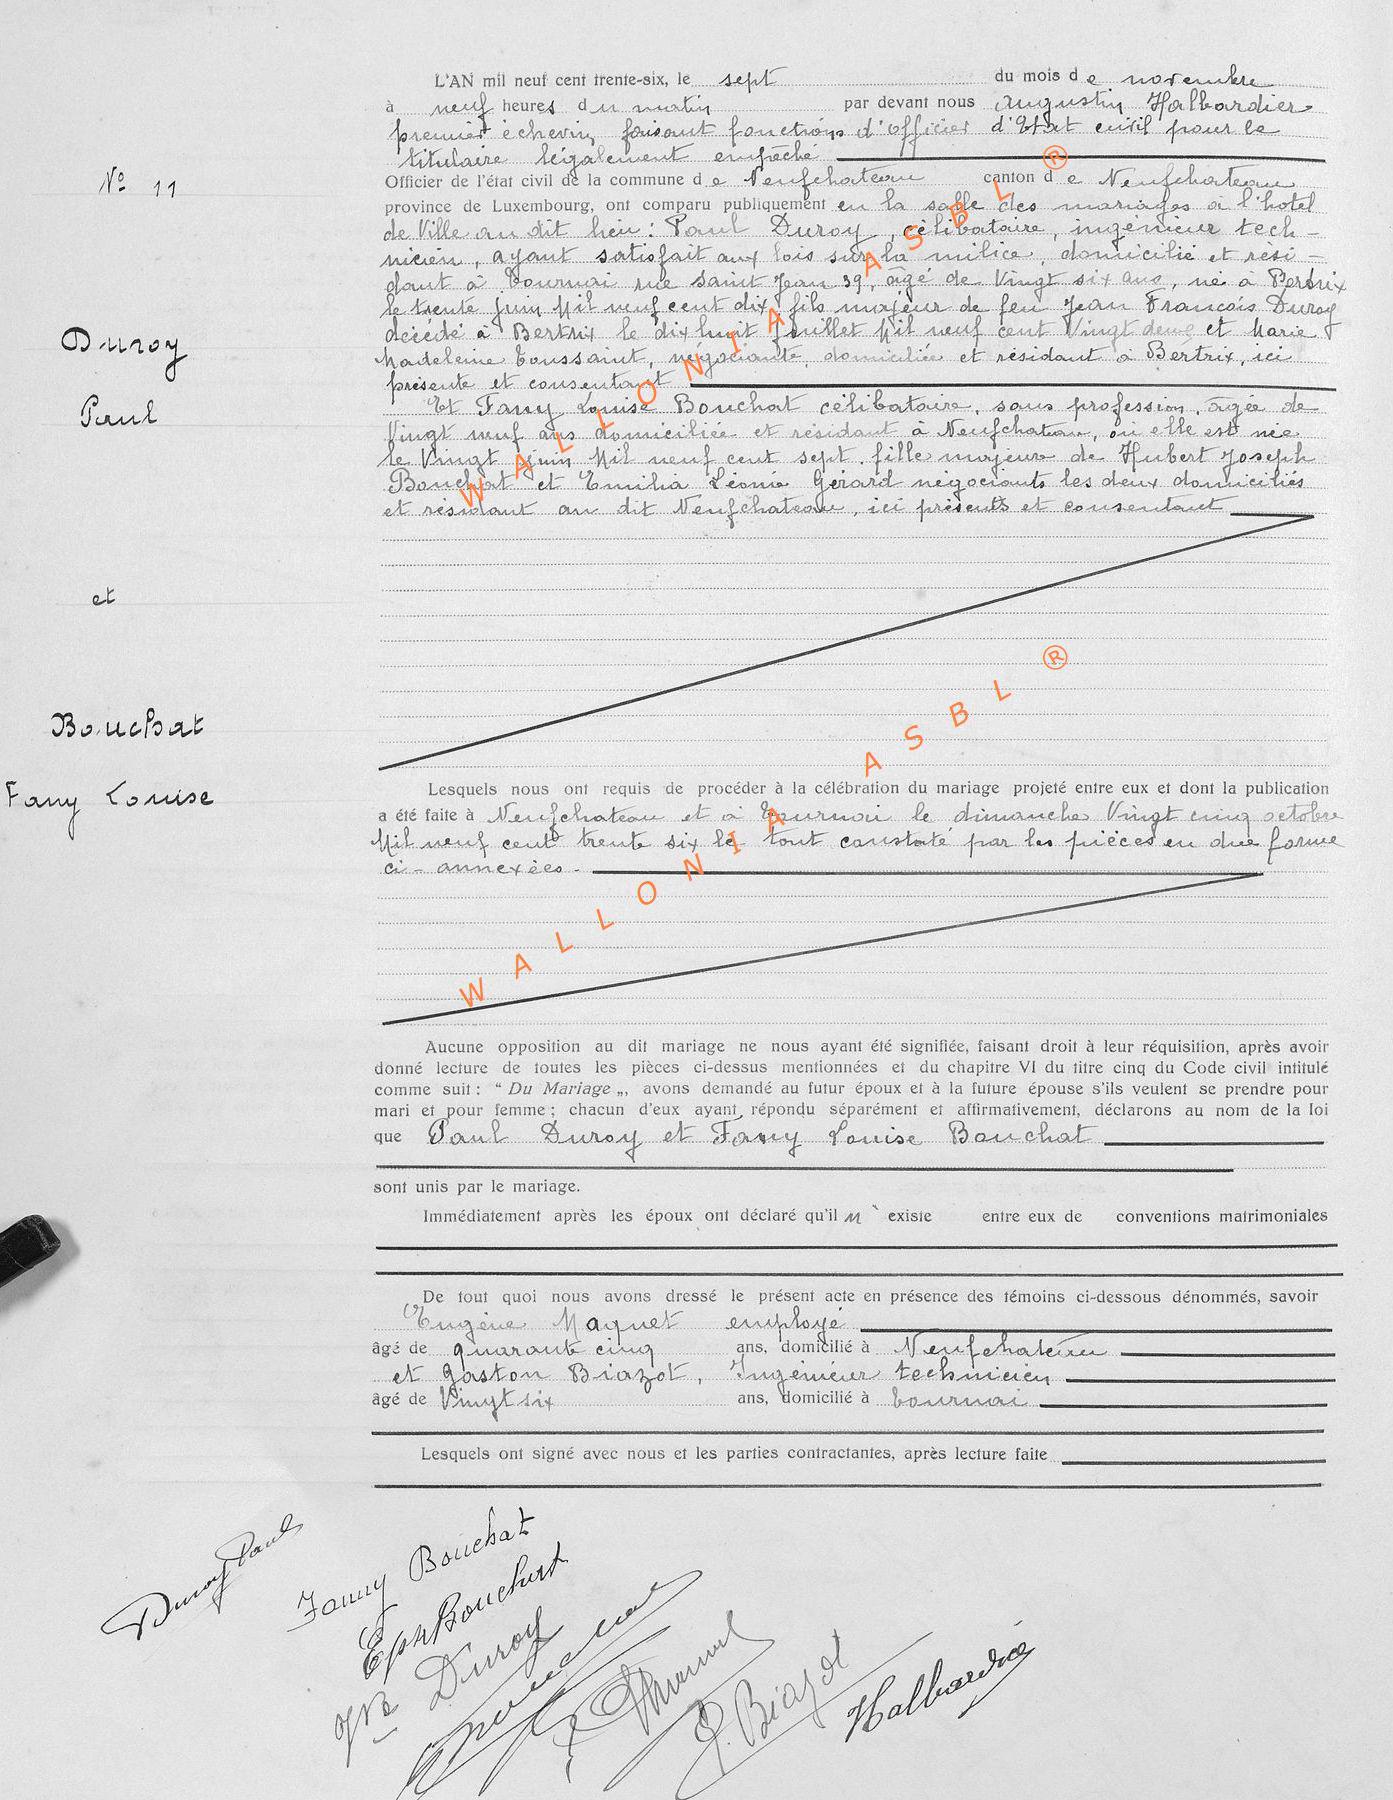 L'AN mil neuf cent trente-six, le sept du mois de novembre
à neuf heures du matin par devant nous Augustin Halbardier
premier échevin, faisant fonctions d'officier d'Etat civil pour le
titulaire légalement empêché
Officier de l'état civil de la commune de Neufchateau canton de Neufchateau
province de Luxembourg, ont comparu publiquement en la salle des mariages à l'hotel
de Ville au dit lieu : Paul Duroy, célibataire, ingénieur tech-
nicien, ayant satisfait aux lois sur la milice, domicilié et rési-
dant à Tournai rue saint Jean 39, âgé de Vingt six ans, né à Bertrix
le trente Juin Mil neuf cent dix, fils majeur de feu Jean François Duroy
décédé à Bertrix le dix huit Juillet Mil neuf cent Vingt deux et Marie
Madeleine Toussaint, négociante, domiciliée et résidant à Bertrix, ici
présente et consentant
Et Fany Louise Bouchat célibataire, sans profession, âgée de
Vingt neuf ans domiciliée et résidant à Neufchateau, où elle est née
le Vingt juin Mil neuf cent sept, fille majeure de Hubert Joseph
Bouchat et Emilia Léonie Gérard négociants les deux domiciliés
et résidant au dit Neufchateau, ici présents et consentant
Nº 11
Duroy
Paul
et
Bouchat
Fany Louise
Lesquels nous ont requis de procéder à la célébration du mariage projeté entre eux et dont la publication
a été faite à Neufchateau et à Tournai le dimanche Vingt cinq octobre
Mil neuf cent trente six le tout constaté par les pièces en due forme
ci-annexées.
Aucune opposition au dit mariage ne nous ayant été signifiée, faisant droit à leur réquisition, après avoir
donné lecture de toutes les pièces ci-dessus mentionnées et du chapitre VI du titre cinq du Code civil intitulé
comme suit : “ Du Mariage „, avons demandé au futur époux et à la future épouse s'ils veulent se prendre pour
mari et pour femme ; chacun d'eux ayant répondu séparément et affirmativement, déclarons au nom de la loi
que Paul Duroy et Fany Louise Bouchat
sont unis par le mariage.
Immédiatement après les époux ont déclaré qu'il n' existe entre eux de conventions matrimoniales
De tout quoi nous avons dressé le présent acte en présence des témoins ci-dessous dénommés, savoir
Eugène Maquet employé
âgé de quarante cinq ans, domicilié à Neufchateau
et Gaston Biazot, Ingénieur technicien
âgé de Vingt six ans, domicilié à Tournai
Lesquels ont signé avec nous et les parties contractantes, après lecture faite
Duroy Paul
Fanny Bouchat
Bouchat
Duroy
G. Biazot
Halbardier
WALLONIA ASBL ®
WALLONIA ASBL ®